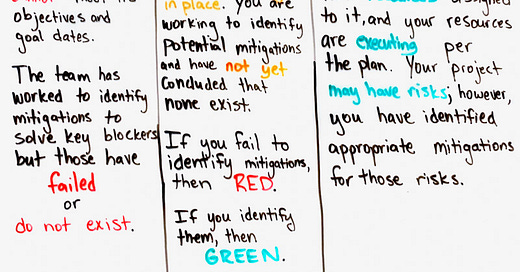 objectives and
goal dates.
The team has
worked to identify
mitigations to
solve key blockers
but those have
failed
or
do not exist.
in place. You are
working to identify
Potential mitigations
and have not yet
concluded that
none exist.
If you fail to
identify mitigations,
then RED.
If you identify
them, then
GREEN.
to it, and your resources
are executing per
the plan. Your project
may have risks; however,
you have identified
appropriate mitigations
for those risks.